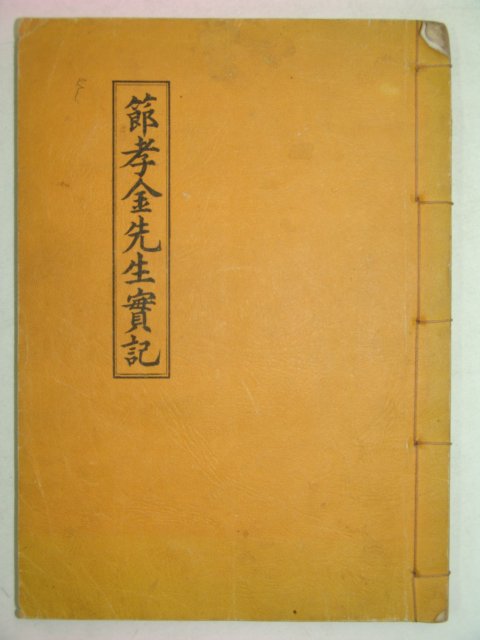 節孝金先生實記